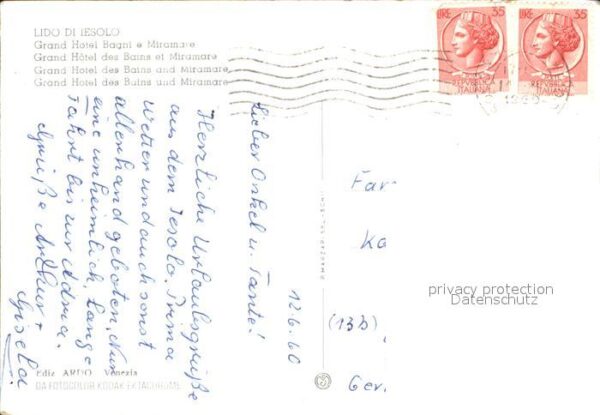 LIDO DI IESOLO
Grand Hotel Bagni e Miramare
Grand Hôtel des Bains et Miramare
Grand Hotel des Bains and Miramare
Grand Hotel des Bains und Miramare
LIRE 35
LIRE 35
REPUBBLICA
ITALIANA
REPUBBLICA
ITALIANA
12.6.60
Lieber Onkel u. Tante!
Herzliche Urlaubsgrüße
aus dem Jesolo. Prima
Wetter und auch sonst
allerhand geboten. Nur
eine unheimlich lange
Fahrt bis zur Adria.
Grüße Arthur +
Gisela
Far
Ka
(13b)
Ger
privacy protection
Datenschutz
Ediz ARDO Venezia
DA FOTOCOLOR KODAK EKTACHROME